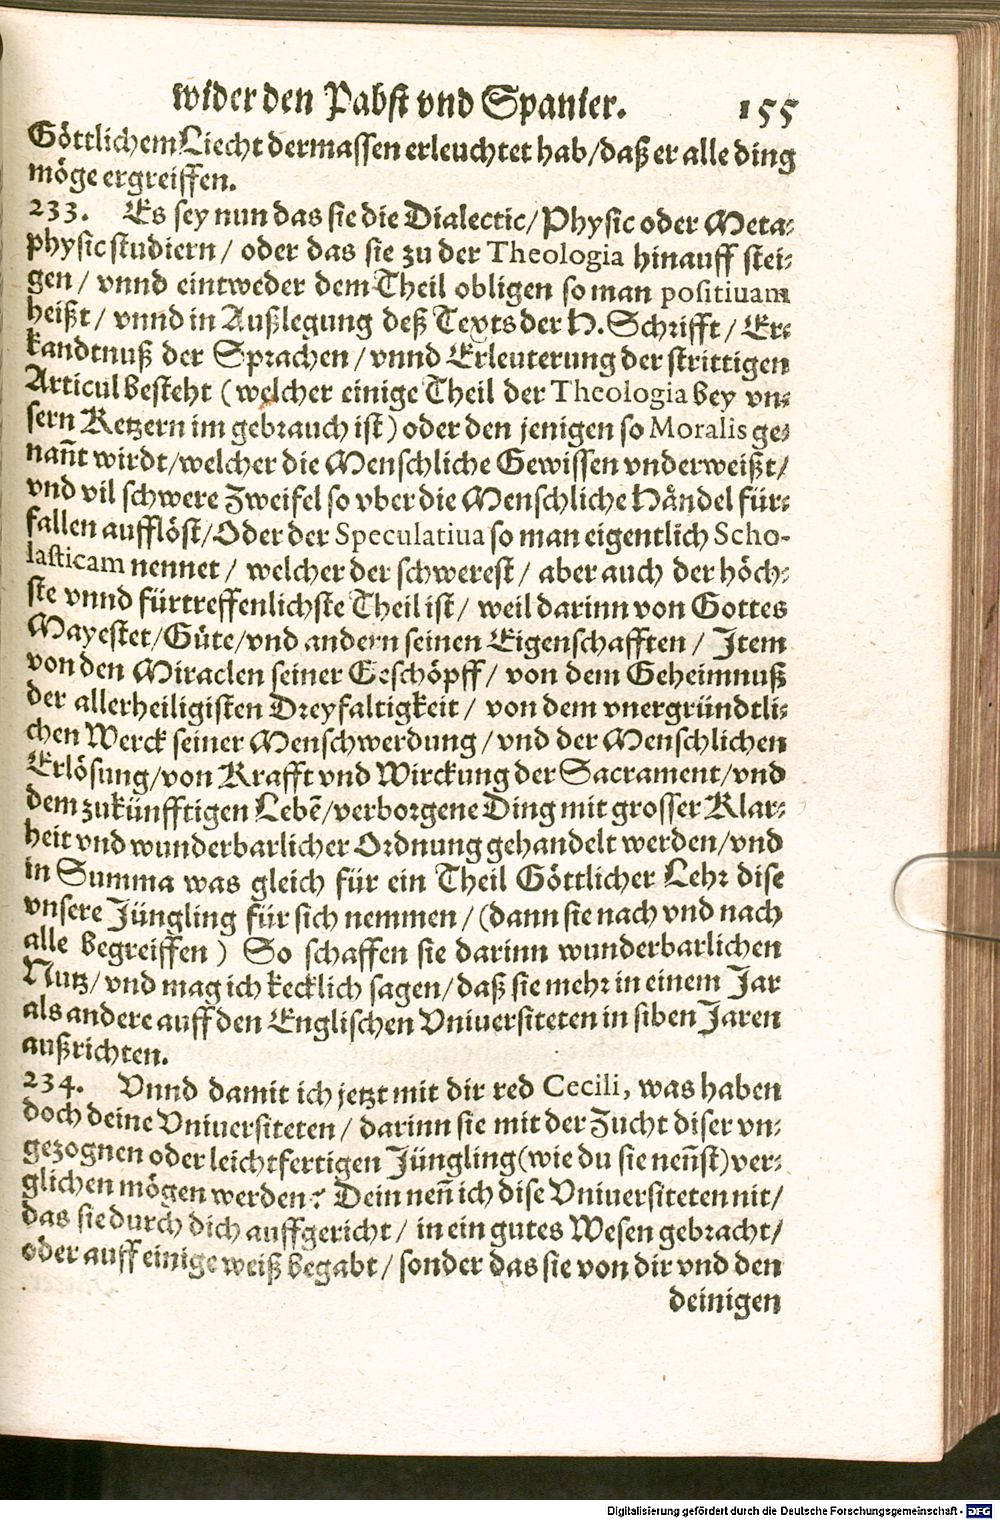 wider den Pabst vnd Spanier. 155
Göttlichem Liecht dermassen erleuchtet hab/daß er alle ding
möge ergreiffen.
233. Es sey nun das sie die Dialectic/Physic oder Meta-
physic studiern/ oder das sie zu der Theologia hinauff stei-
gen/ vnnd eintweder dem Theil obligen so man positiuam
heißt/ vnnd in Außlegung deß Texts der H. Schrifft/ Er-
kandtnuß der Sprachen/ vnnd Erleuterung der strittigen
Articul besteht (welcher einige Theil der Theologia bey vn-
sern Ketzern im gebrauch ist) oder den jenigen so Moralis ge-
nañt wirdt/welcher die Menschliche Gewissen vnderweißt/
vnd vil schwere Zweifel so vber die Menschliche Händel für-
fallen aufflöst/Oder der Speculatiua so man eigentlich Scho-
lasticam nennet/ welcher der schwerest/ aber auch der höch-
ste vnnd fürtreffenlichste Theil ist/ weil darinn von Gottes
Mayestet/Güte/vnd andern seinen Eigenschafften/ Item
von den Miraclen seiner Geschöpff/ von dem Geheimnuß
der allerheiligisten Dreyfaltigkeit/ von dem vnergründtli-
chen Werck seiner Menschwerdung/vnd der Menschlichen
Erlösung/von Krafft vnd Wirckung der Sacrament/vnd
dem zukünfftigen Lebẽ/verborgene Ding mit grosser Klar-
heit vnd wunderbarlicher Ordnung gehandelt werden/vnd
in Summa was gleich für ein Theil Göttlicher Lehr dise
vnsere Jüngling für sich nemmen/(dann sie nach vnd nach
alle begreiffen) So schaffen sie darinn wunderbarlichen
Nutz/vnd mag ich kecklich sagen/daß sie mehr in einem Jar
als andere auff den Englischen Vniuersiteten in siben Jaren
außrichten.
234. Vnnd damit ich jetzt mit dir red Cecili, was haben
doch deine Vniuersiteten/ darinn sie mit der Zucht diser vn-
gezognen oder leichtfertigen Jüngling(wie du sie neñst)ver-
glichen mögen werden? Dein neñ ich dise Vniuersiteten nit/
das sie durch dich auffgericht/ in ein gutes Wesen gebracht/
oder auff einige weiß begabt/ sonder das sie von dir vnd den
deinigen
Digitalisierung gefördert durch die Deutsche Forschungsgemeinschaft - DFG